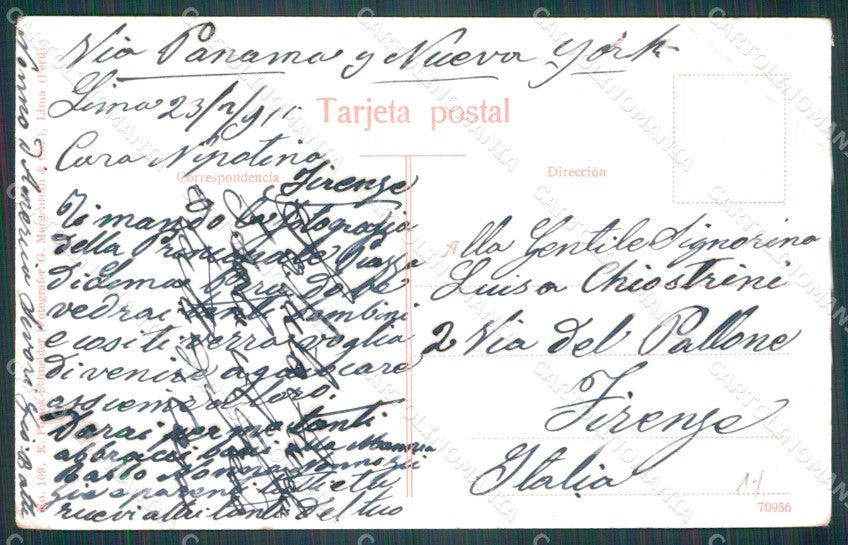 Via Panama y Nueva York
Lima 23/ /911
Tarjeta postal
Cara Nipotina
Correspondencia
Firenze
Ti mando la fotografia
della Principale Piazza
di Lima Perù dove
vedrai tanti bambini
e così ti verrà voglia
di venire a giuocare
assieme a loro.
Darai per me tanti
abbracci baci alla Mamma
Babbo Nonna Nonno zii
zie e parenti tutti e tu
ricevi altri tanti del tuo
Nonno
Dirección
Alla Gentile Signorina
Luisa Chiostrini
2 Via del Pallone
Firenze
Italia
70956
No. 109. E. Polack-Schneider (Fotografer G. Morgenroth & ), Lima (Perú)
CARTOLINOMANIA